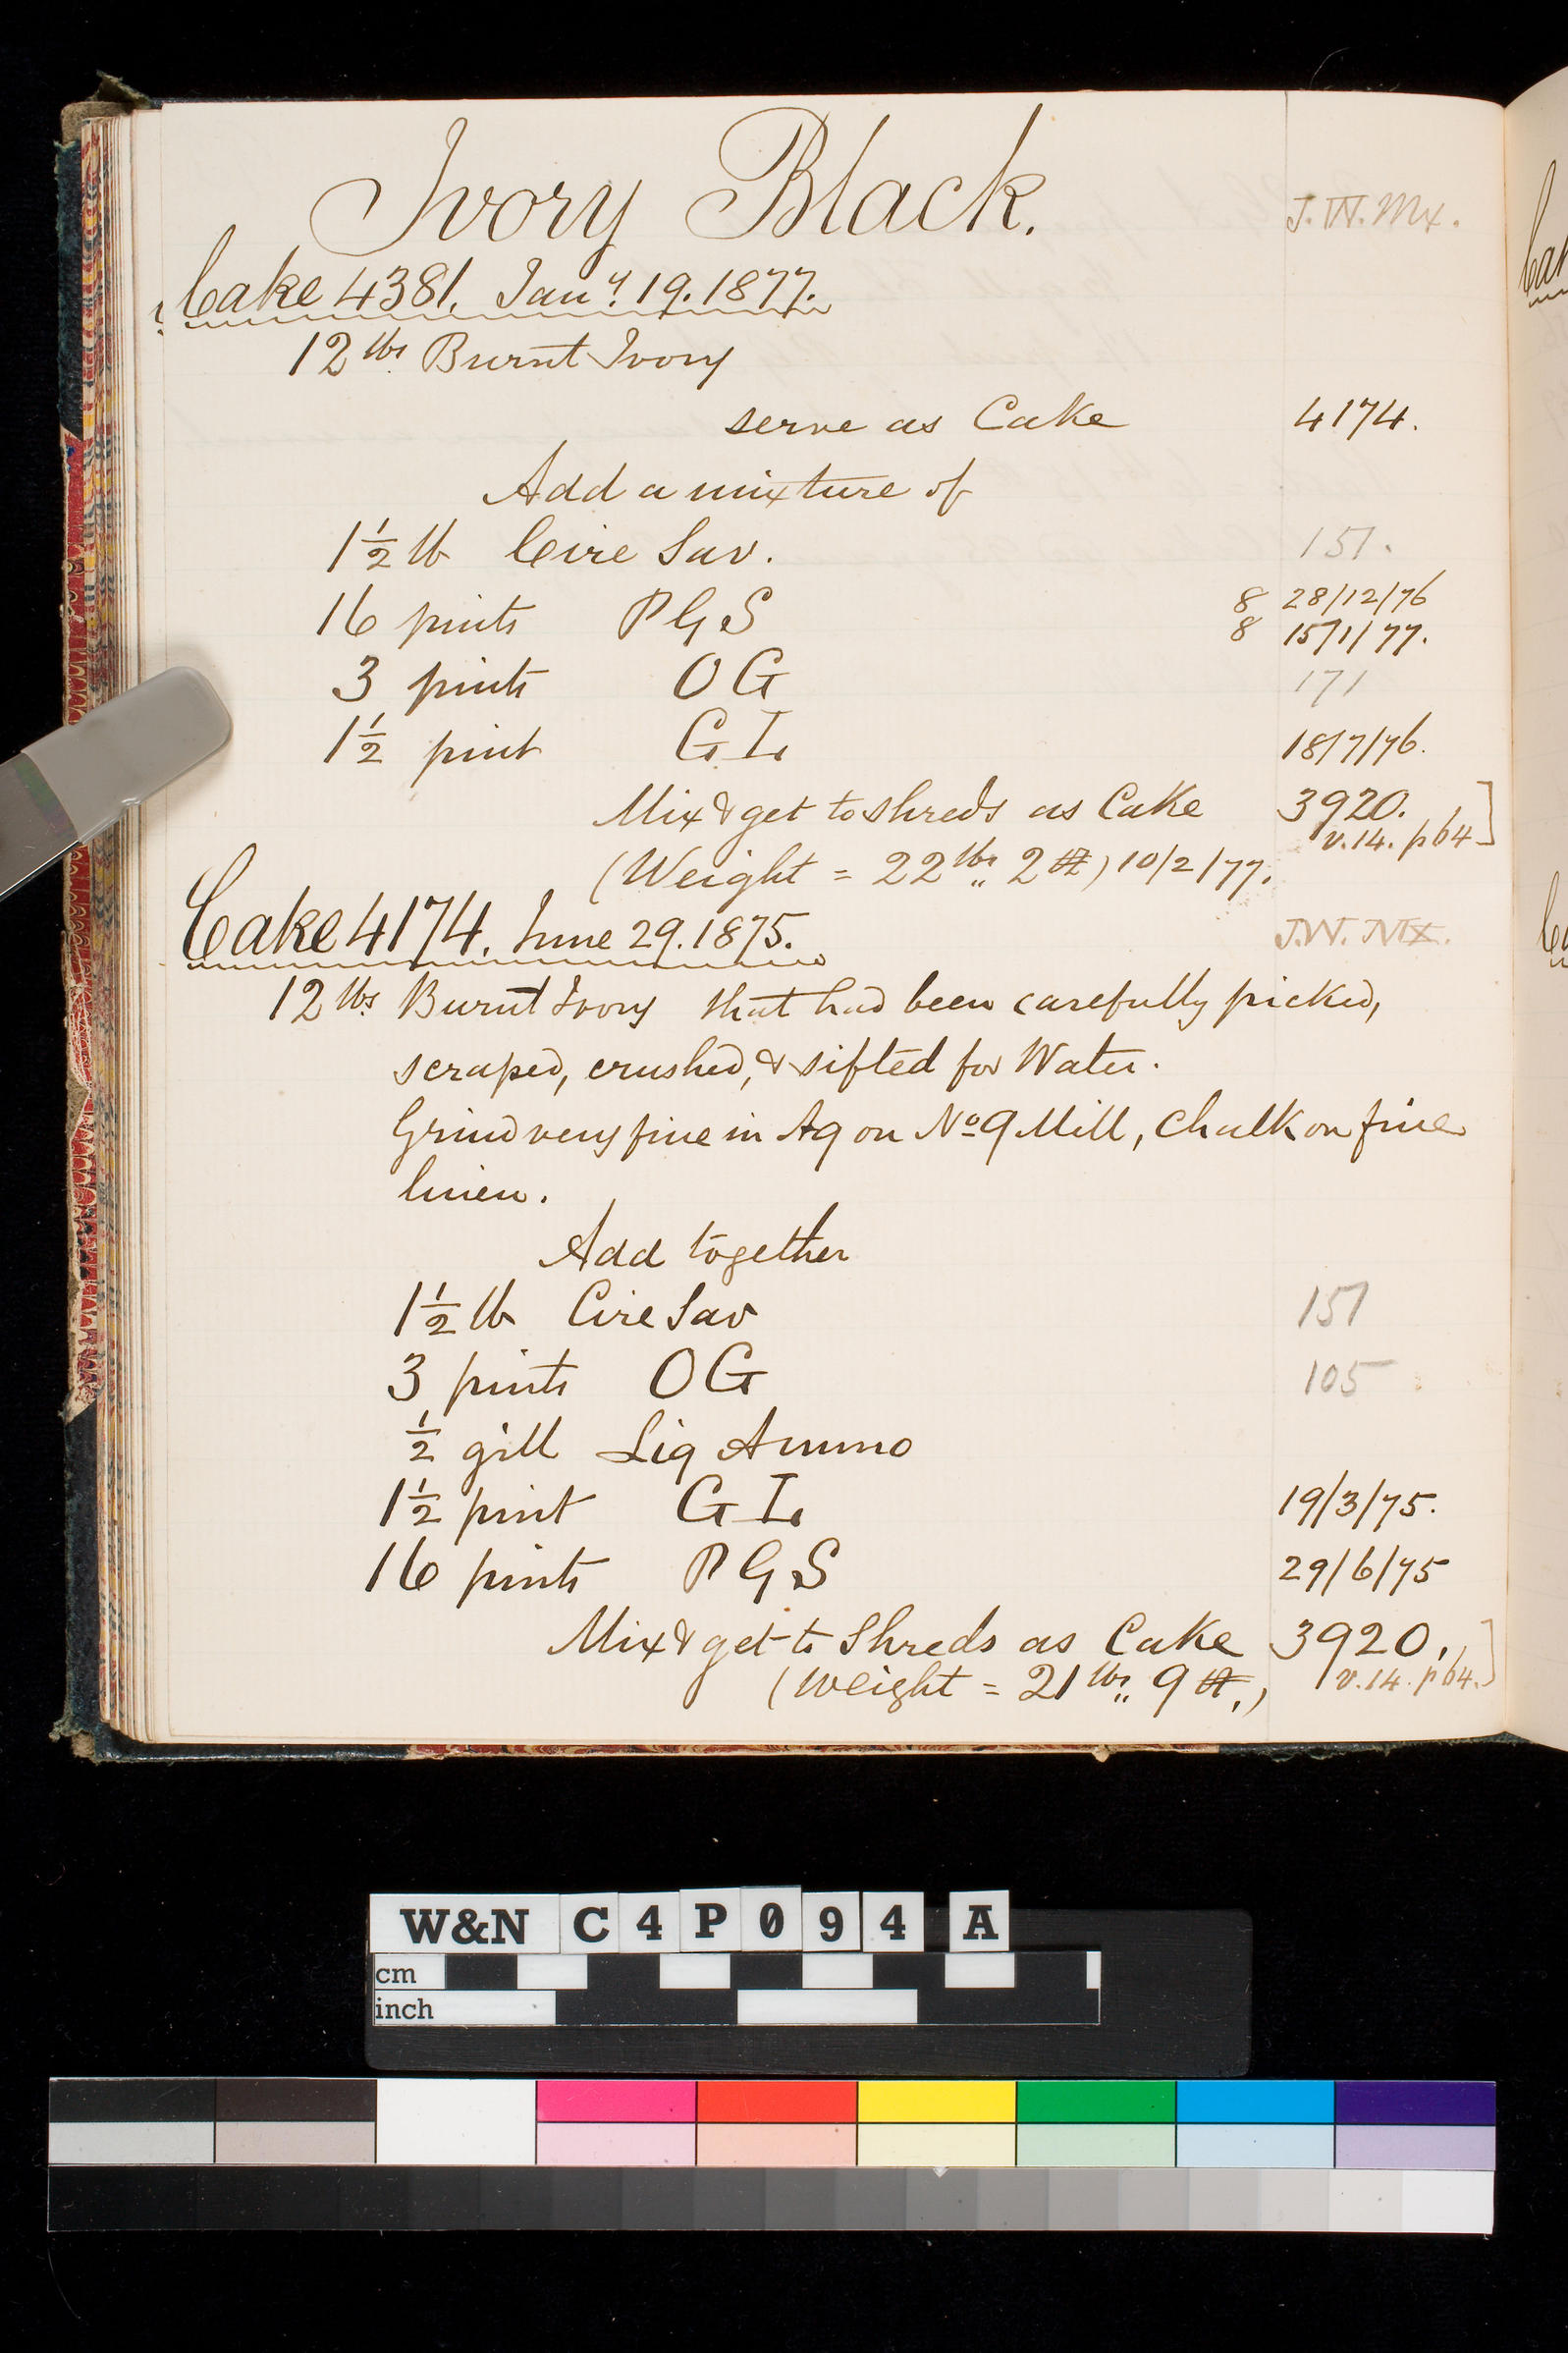 Ivory Black.
Cake 4381. Jany. 19. 1877.
12 lbs Burnt Ivory
serve as Cake 4174.
Add a mixture of
1½ lb Cire Sav. 151.
16 pints PGS 8 28/12/76
8 15/1/77.
3 pints OG 171
1½ pint GL 18/7/76.
Mix & get to shreds as Cake 3920.
v.14. p64
(Weight = 22 lbs 2 ) 10/2/77.
Cake 4174. June 29. 1875.
12 lbs Burnt Ivory that had been carefully picked,
scraped, crushed, & sifted for Water.
Grind very fine in Aq on No 9 Mill, Chalk on fine
linen.
Add together
1½ lb Cire Sav 151
3 pints OG 105
½ gill Liq Ammo
1½ pint GL 19/3/75.
16 pints PGS 29/6/75
Mix & get to Shreds as Cake 3920.
(Weight = 21 lbs 9 ) v.14. p64.
W&N C4P094 A
cm
inch